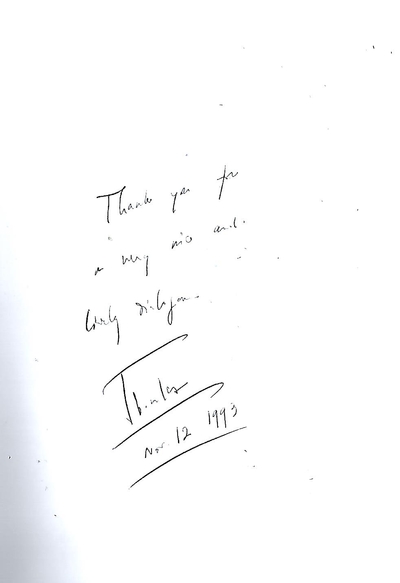 Thank you for
a very nice and
lively dialogue.
Nov. 12 1993